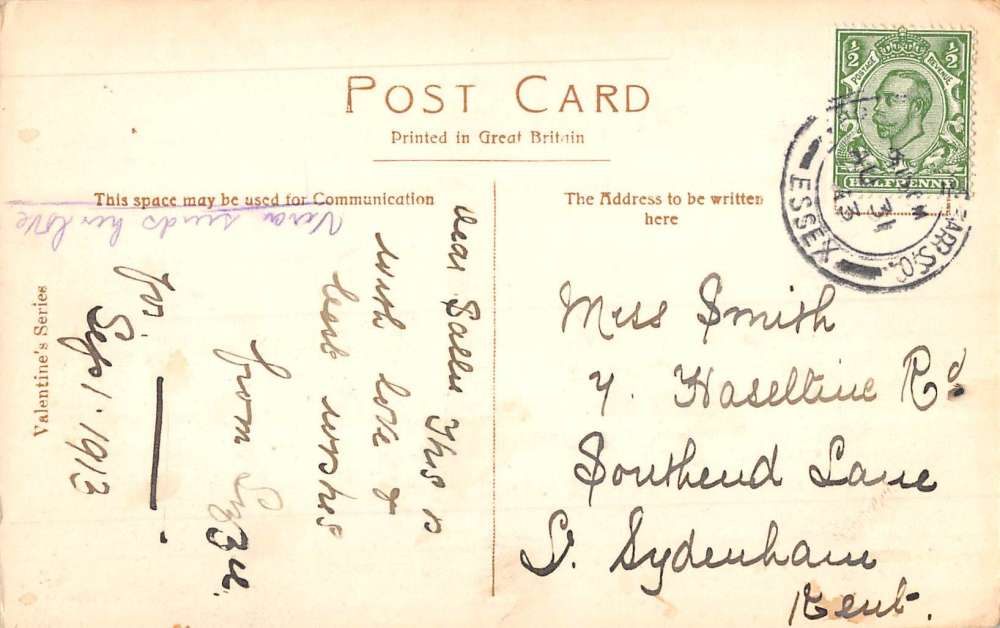 POST CARD
Printed in Great Britain
This space may be used for Communication
The Address to be written
here
½ ½
POSTAGE REVENUE
HALFPENNY
ESSEX
AU 31
13
Vera sends her love
Dear This is
with love &
best wishes
from
for
Sep 1. 1913
Valentine's Series
Miss Smith
7. Haseltine Rd
Southend Lane
S. Sydenham
Kent.